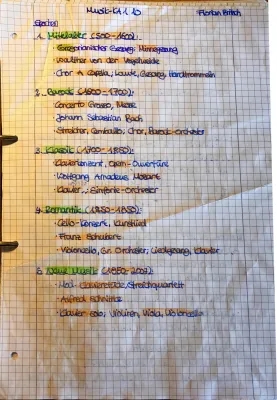 Musik-KA 1 10
Florian Fritsch
Epochen
1. Mittelalter (500-1600):
· Gregorianischer Gesang, Minnegesang
· Walther von der Vogelweide
· Chor A Capella, Laute, Gesang, Handtrommeln
2. Barock (1600-1700):
· Concerto Grosso, Messe
· Johann Sebastian Bach
· Streicher, Cembalo, Chor, Barock-Orchester
3. Klassik (1700-1850):
· Klavierkonzert, Opern-Ouvertüre
· Wolfgang Amadeus Mozart
· Klavier, Sinfonie-Orchester
4. Romantik (1850-1950):
· Cello-Konzert, Kunstlied
· Franz Schubert
· Violoncello, Gr. Orchester, Liedgesang, Klavier
5. Neue Musik (1950-2007):
· Mod. Klavierstücke, Streichquartett
· Alfred Schnittke
· Klavier solo, Violinen, Viola, Violoncello